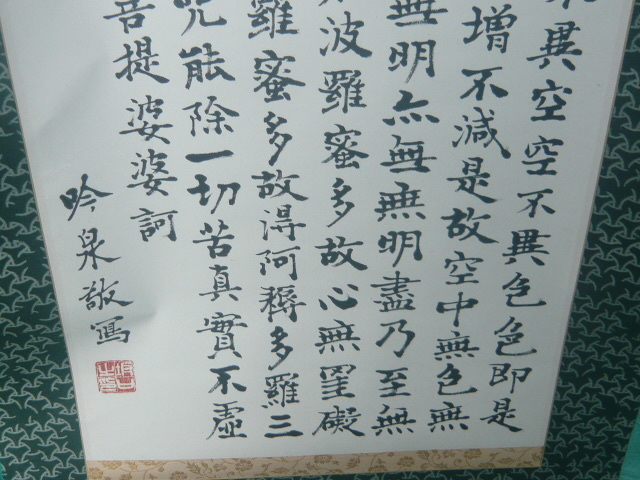 異空空不異色色即是
增不減是故空中無色無
無明亦無無明盡乃至無
波羅蜜多故心無罣礙
羅蜜多故得阿耨多羅三
咒能除一切苦真實不虛
菩提婆婆訶
吟泉敬寫